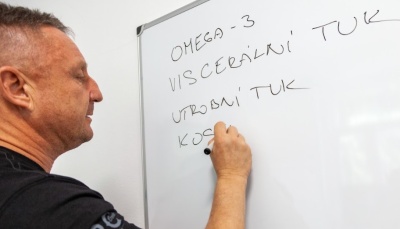 OMEGA - 3
VISCERÁLNÍ TUK
ÚTROBNÍ TUK